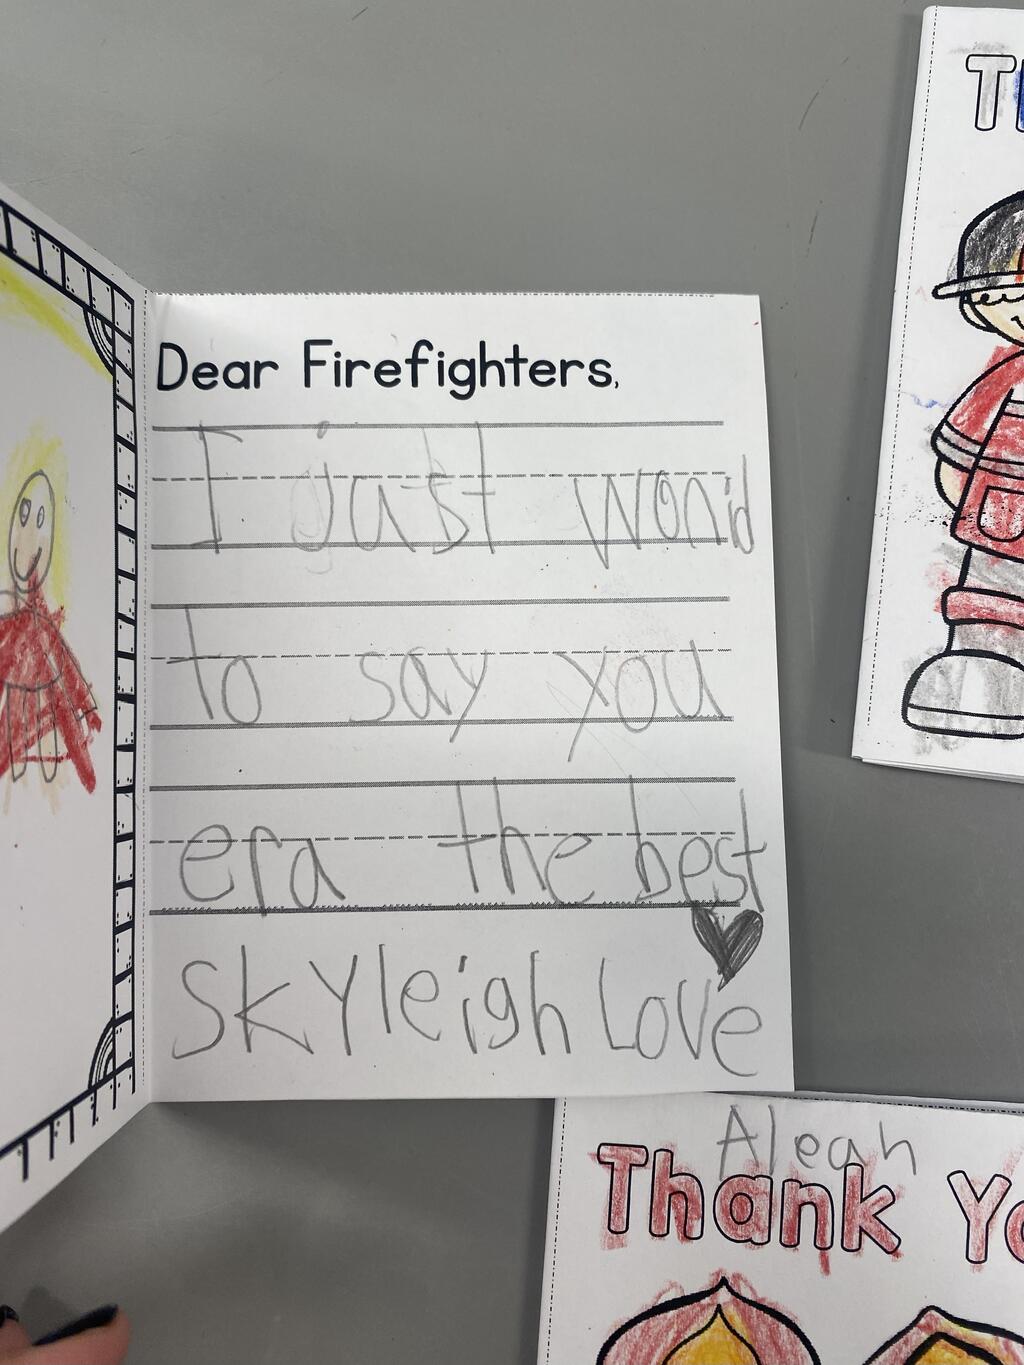 Dear Firefighters,
I just won'd
to say you
era the best
Skyleigh Love
Aleah
Thank Yo